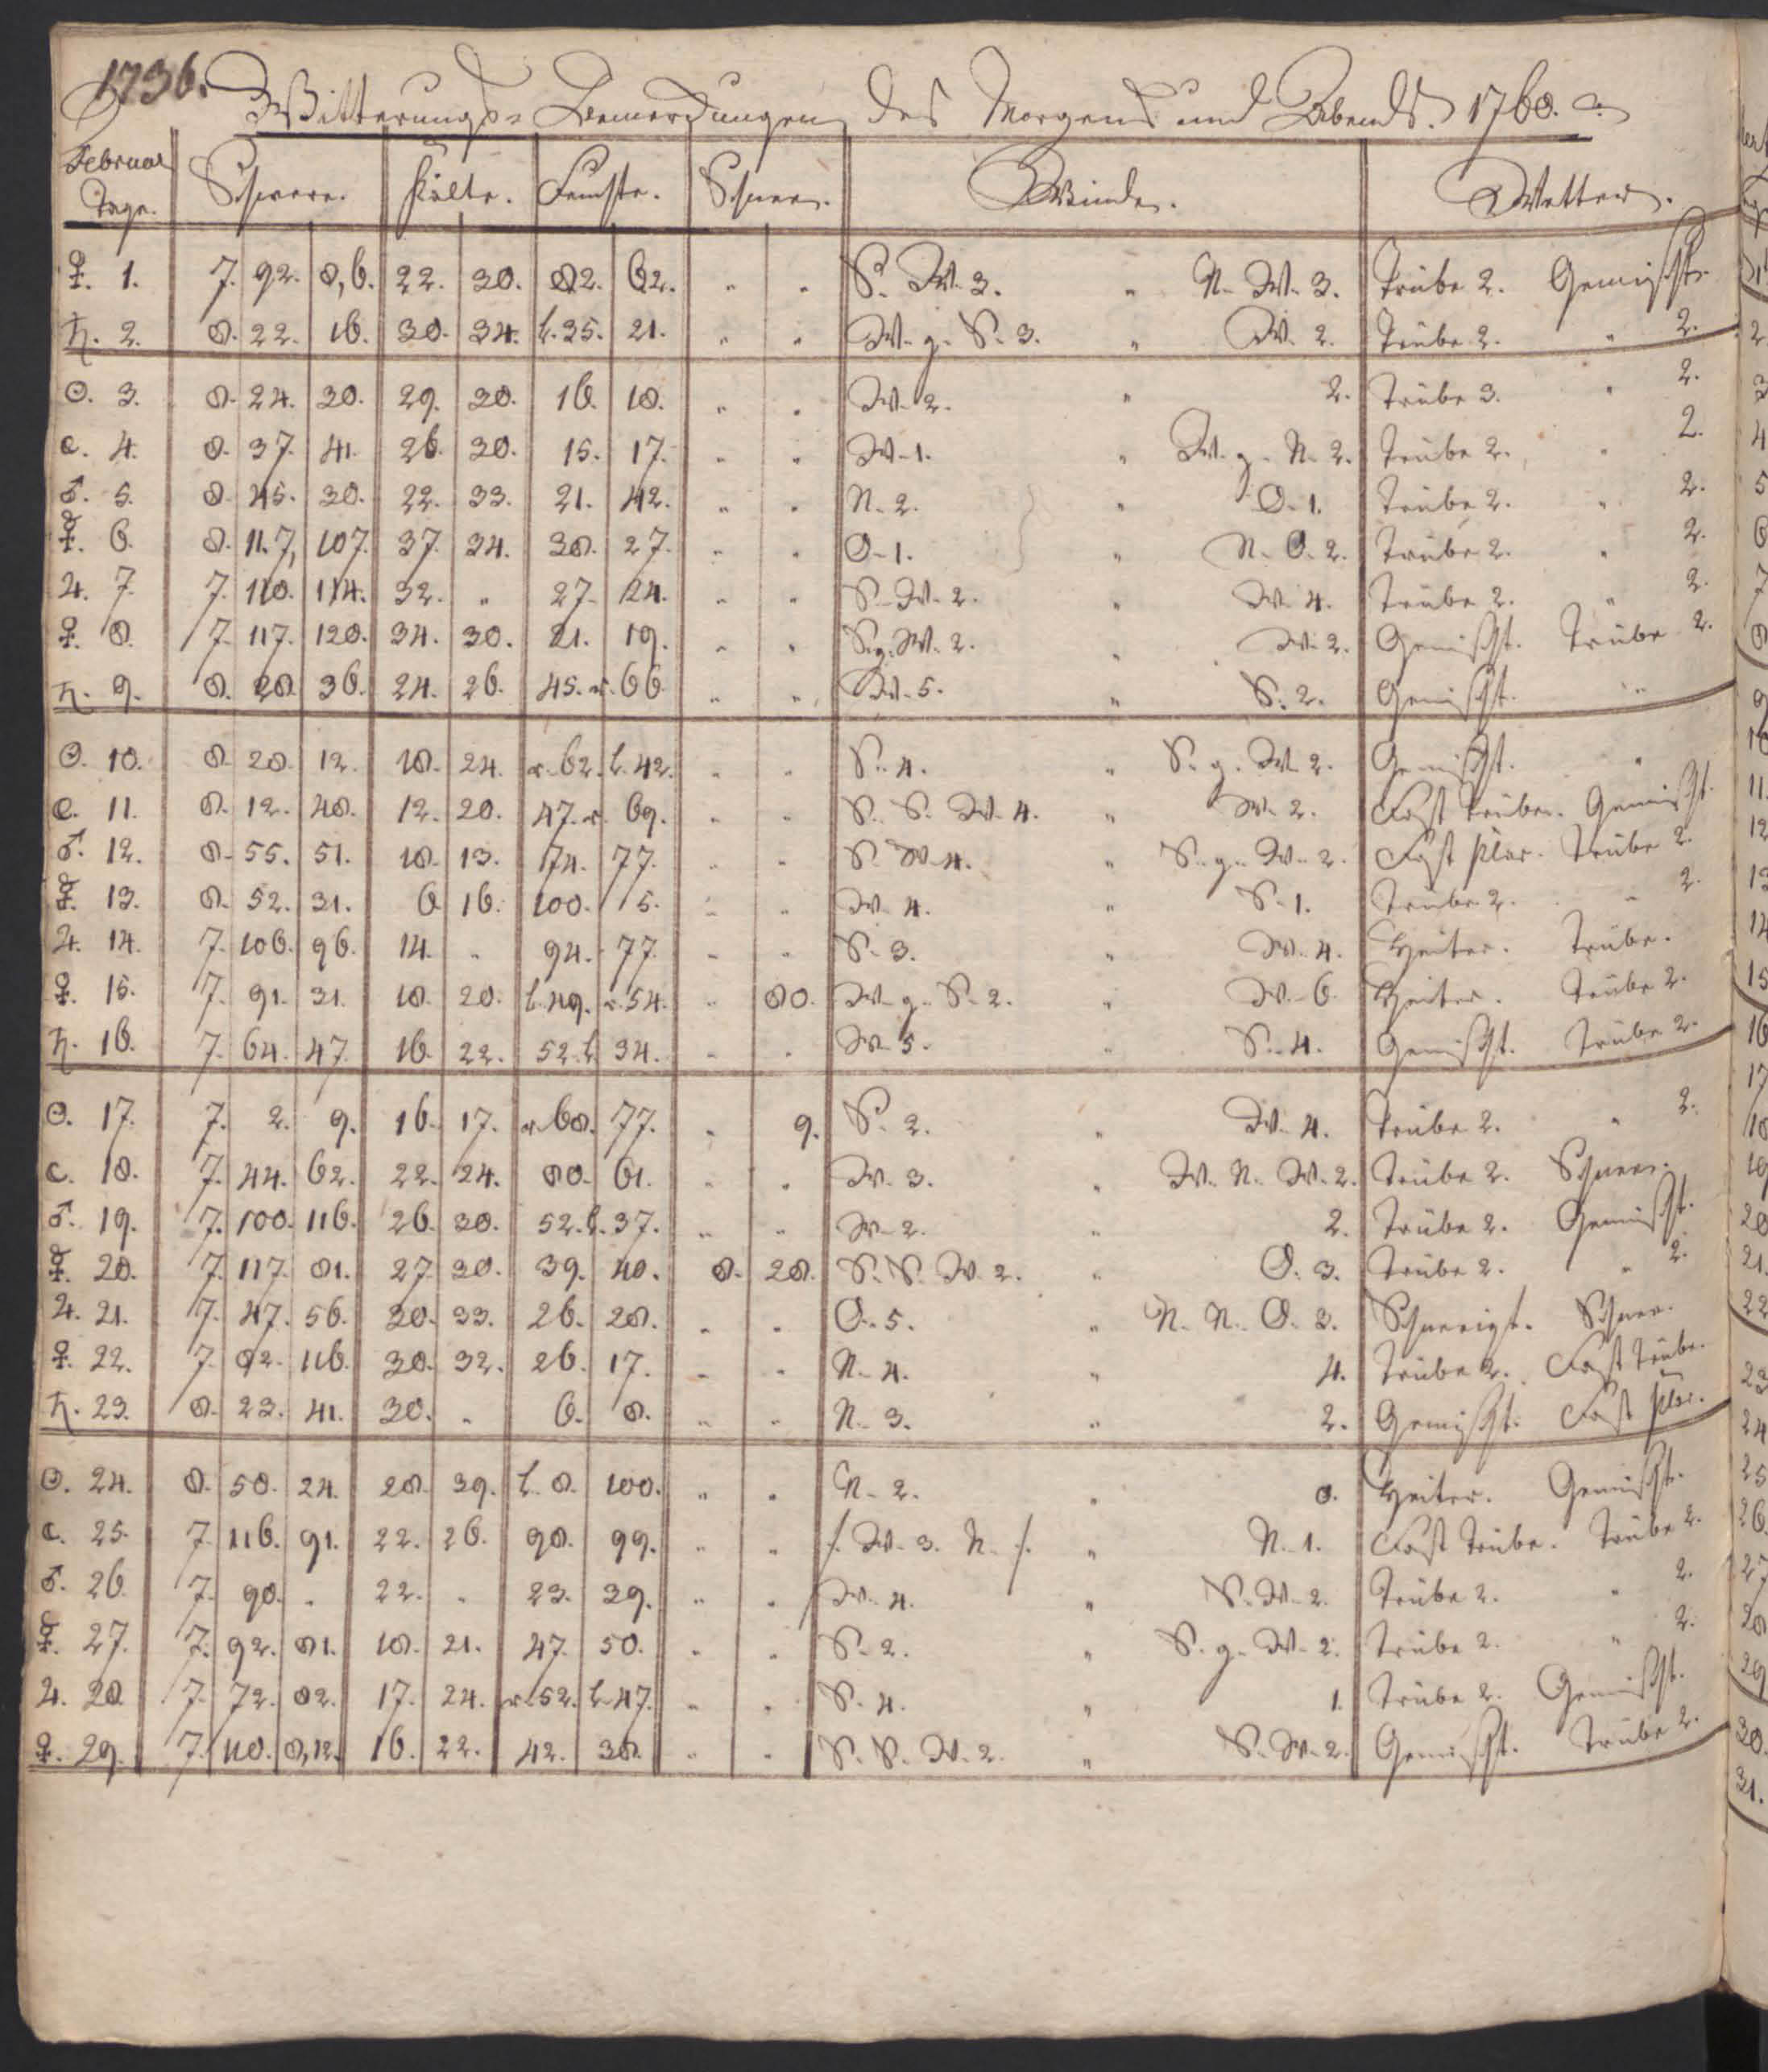 1736.
Witterungs- Bemerkungen des Morgens und Abends. 1760.
Februar Tage. Schwere. Kälte. Feuchte. Schnee. Winde. Wetter.
♀. 1. 7. 92. 8,6. 22. 30. 82. 62. " " S. W. 3. " N. W. 3. Trübe 2. Gemischt.
♄. 2. 8. 22. 16. 30. 34. l. 35. 21. " " W. g. S. 3. " W. 2. Trübe 2. " 2.
☉. 3. 8. 24. 30. 29. 30. 16. 18. " " W. 2. " 2. Trübe 3. " 2.
☾. 4. 8. 37. 41. 26. 30. 15. 17. " " W. 1. " W. g. N. 2. Trübe 2. " 2.
♂. 5. 8. 45. 30. 22. 33. 21. 42. " " N. 2. " O. 1. Trübe 2. " 2.
☿. 6. 8. 117, 107. 37. 34. 38. 27. " " O. 1. " N. O. 2. Trübe 2. " 2.
♃. 7. 7. 110. 114. 32. " 27. 24. " " S. W. 2. " W. 4. Trübe 2. " 2.
♀. 8. 7. 117. 120. 34. 30. 21. 19. " " S. g. W. 2. " W. 2. Gemischt. Trübe 2.
♄. 9. 8. 28. 36. 24. 26. 45. r. 66. " " W. 5. " S. 2. Gemischt. "
☉. 10. 8. 28. 12. 18. 24. r. 62. l. 42. " " S. 4. " S. g. W. 2. Gemischt. "
☾. 11. 8. 12. 48. 12. 20. 47. r. 69. " " S. S. W. 4. " W. 2. Fast trübe. Gemischt.
♂. 12. 8. 55. 51. 18. 13. 74. 77. " " S. W. 4. " S. g. W. 2. Fast klar. Trübe 2.
☿. 13. 8. 52. 31. 6. 16. 100. 5. " " W. 4. " S. 1. Trübe 2. " 2.
♃. 14. 7. 106. 96. 14. " 94. 77. " " S. 3. " W. 4. Heiter. Trübe.
♀. 15. 7. 91. 31. 18. 20. l. 49. r. 54. " 80. W. g. S. 2. " W. 6. Heiter. Trübe 2.
♄. 16. 7. 64. 47. 16. 22. 52. l. 34. " " W. 5. " S. 4. Gemischt. Trübe 2.
☉. 17. 7. 2. 9. 16. 17. r. 68. 77. " 9. S. 2. " W. 4. Trübe 2. " 2.
☾. 18. 7. 44. 62. 22. 24. 80. 61. " " W. 3. " W. N. W. 2. Trübe 2. Schnee.
♂. 19. 7. 100. 116. 26. 30. 52. l. 37. " " W. 2. " 2. Trübe 2. Gemischt.
☿. 20. 7. 117. 81. 27. 30. 39. 40. 8. 28. S. S. W. 2. " O. 3. Trübe 2. " 2.
♃. 21. 7. 47. 56. 30. 33. 26. 28. " " O. 5. " N. N. O. 3. Schneeigt. Schnee.
♀. 22. 7. 92. 116. 30. 32. 26. 17. " " N. 4. " 4. Trübe 2. Fast trübe.
♄. 23. 8. 23. 41. 30. " 6. 8. " " N. 3. " 2. Gemischt. Fast klar.
☉. 24. 8. 50. 24. 28. 39. l. 8. 100. " " N. 2. " 0. Heiter. Gemischt.
☾. 25. 7. 116. 91. 22. 26. 98. 99. " " /. W. 3. N. /. " N. 1. Fast trübe. Trübe 2.
♂. 26. 7. 90. " 22. " 23. 39. " " W. 4. " S. W. 2. Trübe 2. " 2.
☿. 27. 7. 92. 81. 18. 21. 47. 50. " " S. 2. " S. g. W. 2. Trübe 2. " 2.
♃. 28. 7. 72. 82. 17. 24. r. 52. l. 47. " " S. 4. " 1. Trübe 2. Gemischt.
♀. 29. 7. 110. 8,12. 16. 22. 42. 38. " " S. S. W. 2. " S. W. 2. Gemischt. Trübe 2.